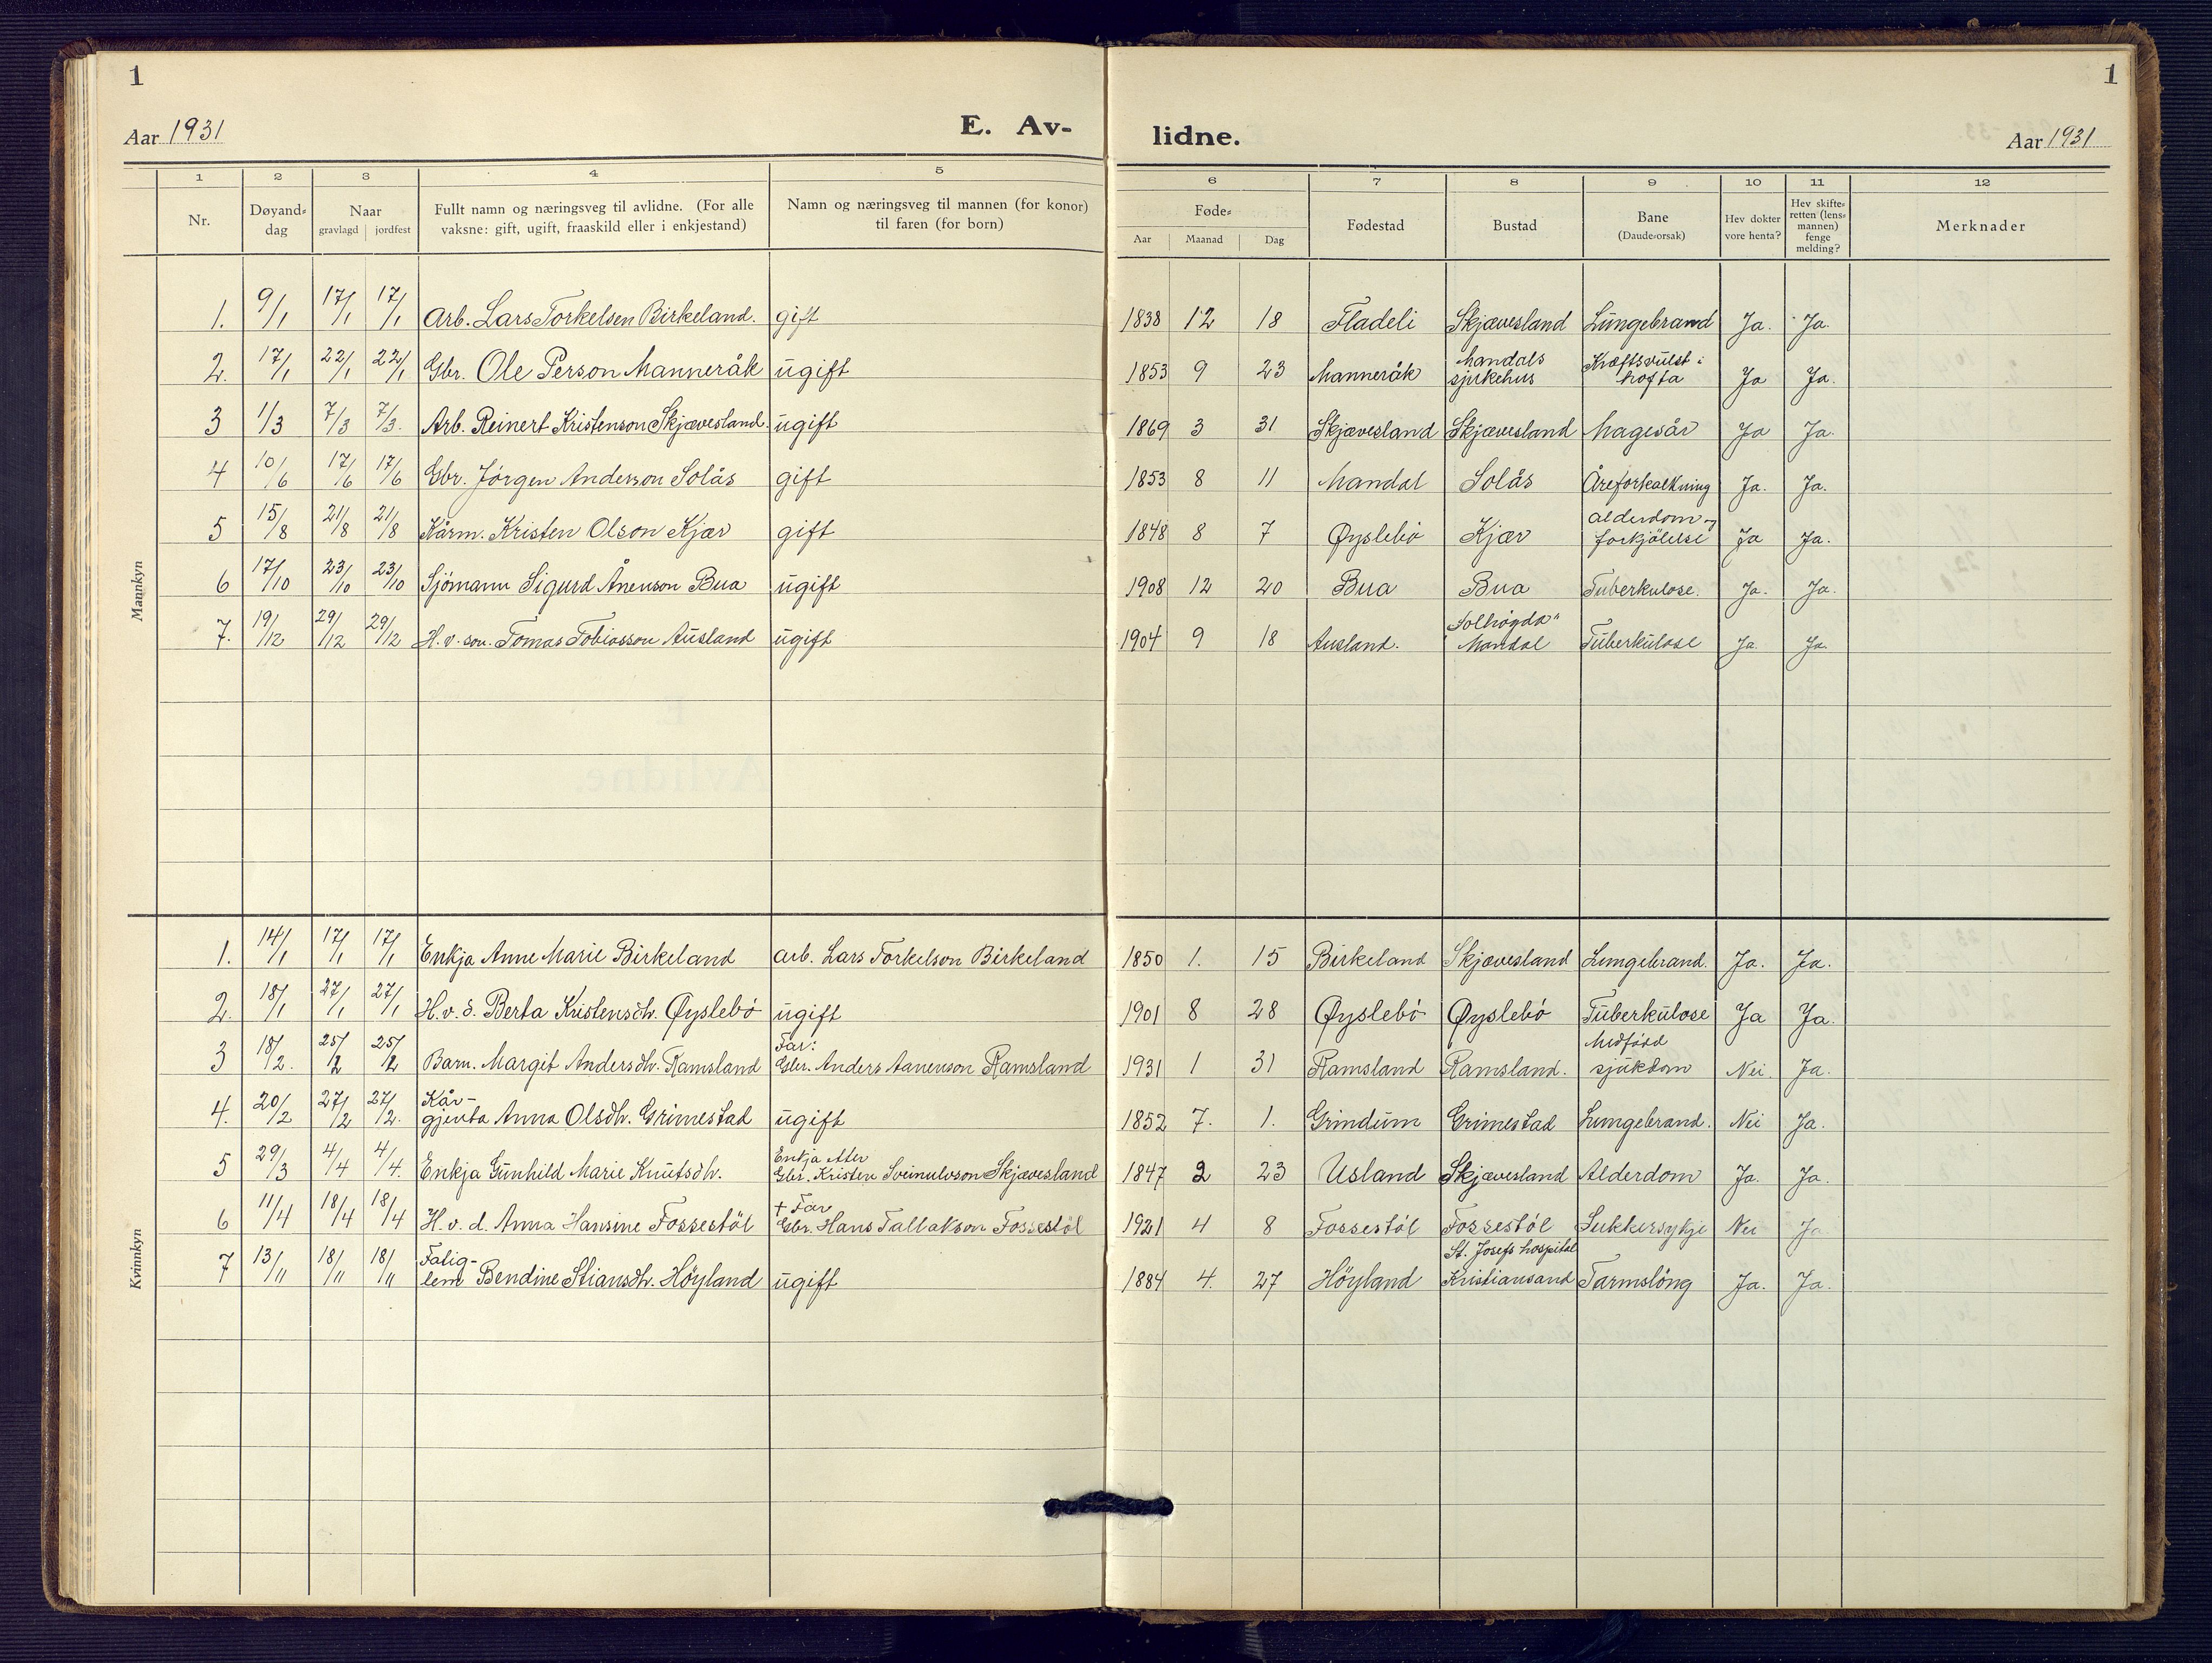 1
1
Aar 1931
E. Av-
lidne.
Aar 1931
1 2 3 4 5 6 7 8 9 10 11 12
Nr.
Døyand-
dag
Naar
gravlagd jordfest
Fullt namn og næringsveg til avlidne. (For alle
vaksne: gift, ugift, fraaskild eller i enkjestand)
Namn og næringsveg til mannen (for konor)
til faren (for born)
Føde-
Aar Maanad Dag
Fødestad
Bustad
Bane
(Daude-orsak)
Hev dokter
vore henta?
Hev skifte-
retten (lens-
mannen)
fenge
melding?
Merknader
Mannkyn
1. 9/1 17/1 17/1 Arb. Lars Torkelsen Birkeland. gift 1838 12 18 Fladeli Skjævesland Lungebrand Ja. Ja.
2. 17/1 22/1 22/1 Gbr. Ole Person Manneråk ugift 1853 9 23 Manneråk Mandals sjukehus Kræftsvulst i hofta Ja Ja.
3 1/3 7/3 7/3. Arb. Reinert Kristenson Skjævesland. ugift 1869 3 31 Skjævesland Skjævesland Magesår Ja Ja.
4 10/6 17/6 17/6 Gbr. Jörgen Anderson Solås gift 1853 8 11 Mandal Solås Åreforkalkning Ja. Ja.
5 15/8 21/8 21/8 Kårm. Kristen Olson Kjær gift 1848 8 7 Øyslebö Kjær alderdom og forkjölelse Ja Ja.
6 17/10 23/10 23/10 Sjömann Sigurd Ånenson Bua ugift 1908 12 20 Bua Bua Tuberkulose. Ja. Ja.
7. 19/12 29/12 29/12 H.v. son. Tomas Tobiasson Ausland ugift 1904 9 18 Ausland. Solhögda" Mandal Tuberkulose Ja. Ja.
Kvinnkyn
1. 14/1 17/1 17/1 Enkja Anne Marie Birkeland arb. Lars Torkelson Birkeland 1850 1. 15 Birkeland Skjævesland Lungebrand. Ja. Ja.
2. 18/1 27/1 27/1 H.v.d. Berta Kristensdh. Øyslebö ugift 1901 8 28 Øyslebö Øyslebö Tuberkulose Ja Ja.
3 18/2. 25/2 25/2 Barn. Margit Andersdh. Ramsland Far: Gbr. Anders Aanenson Ramsland 1931 1 31 Ramsland Ramsland. Medfödd sjukdom Nei. Ja.
4. 20/2 27/2 27/2. Kår-gjenta Anna Olsdh. Grimestad ugift 1852 7. 1. Grindum Grimestad Lungebrand. Nei Ja.
5 29/3 4/4 4/4. Enkja Gunhild Marie Knutsdh. Enkja etter Gbr. Kristen Sveinulvson Skjævesland 1847 2 23 Usland Skjævesland Alderdom Ja. Ja.
6 11/4 18/4 18/4 H.v.d. Anna Hansine Fossestöl + Far Gbr. Hans Tallakson Fossestöl 1921 4 8 Fossestöl Fossestöl Sukkersykje Nei Ja
7 13/11 18/11 18/11 Fatig-lem Bendine Stiansdh. Höyland ugift 1884 4. 27 Höyland St. Josefs hospital Kristiansand Tarmslöng Ja. Ja.